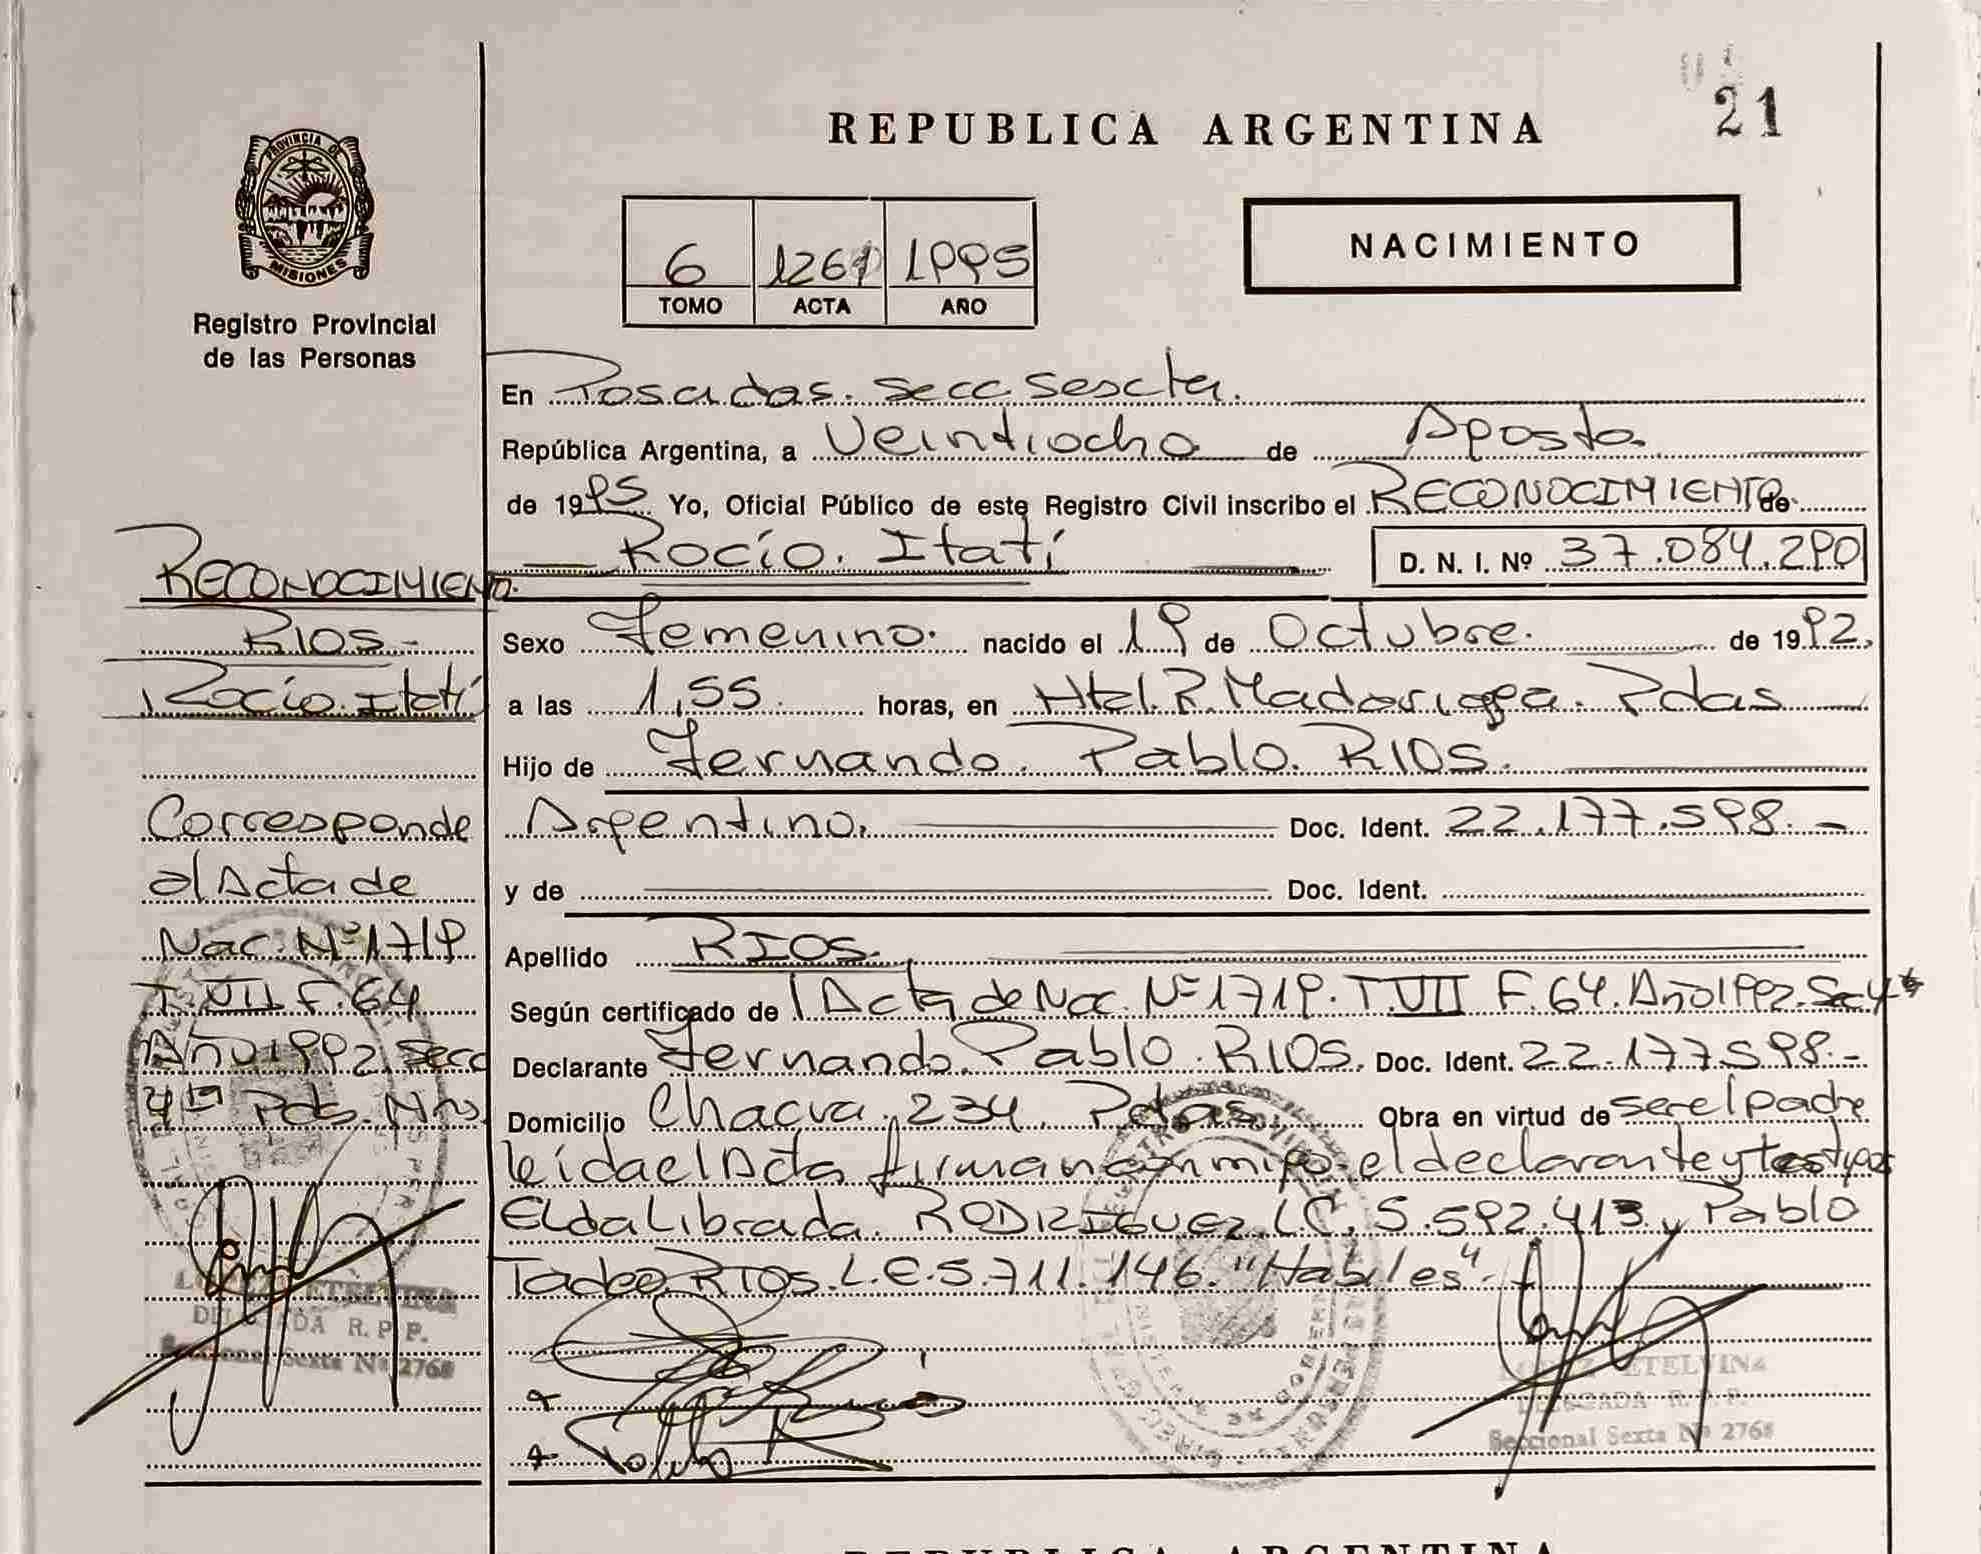 21
REPUBLICA ARGENTINA
PROVINCIA DE
MISIONES
Registro Provincial
de las Personas
6 1261 1995
TOMO ACTA AÑO
NACIMIENTO
En Posadas. Secc. Sescta.
República Argentina, a Veintiocho de Agosto
de 1995 Yo, Oficial Público de este Registro Civil inscribo el RECONOCIMIENTO de
Rocío. Itatí D. N. I. Nº 37.084.290
Sexo Femenino. nacido el 19 de Octubre. de 1992.
a las 1,55. horas, en Htal. R. Madariaga. Pdas
Hijo de Fernando. Pablo. RIOS.
Argentino. Doc. Ident. 22.177.598.-
y de Doc. Ident.
Apellido RIOS.
Según certificado de Acta de Nac. Nº 1719. T. VII F. 64. Año 1992. Sec 4ª
Declarante Fernando. Pablo. RIOS. Doc. Ident. 22.177.598.-
Domicilio Chacra. 234. Pdas. Obra en virtud de ser el padre
leída el Acta firman conmigo el declarante y testigos
Elda Librada. RODRIGUEZ L.C. 5.592.413 y Pablo
Tadeo RIOS. L.E. 5.711.146. "Habiles"-
RECONOCIMIENTO.
RIOS.-
Rocío. Itatí
Corresponde
al Acta de
Nac. Nº 1719.
T. VII F. 64
Año 1992. Secc
4ta Pds. Mns.
ETELVINA
DELEGADA R. P. P.
Seccional Sexta Nº 2768
ETELVINA
DELEGADA R. P. P.
Seccional Sexta Nº 2768
REPUBLICA ARGENTINA